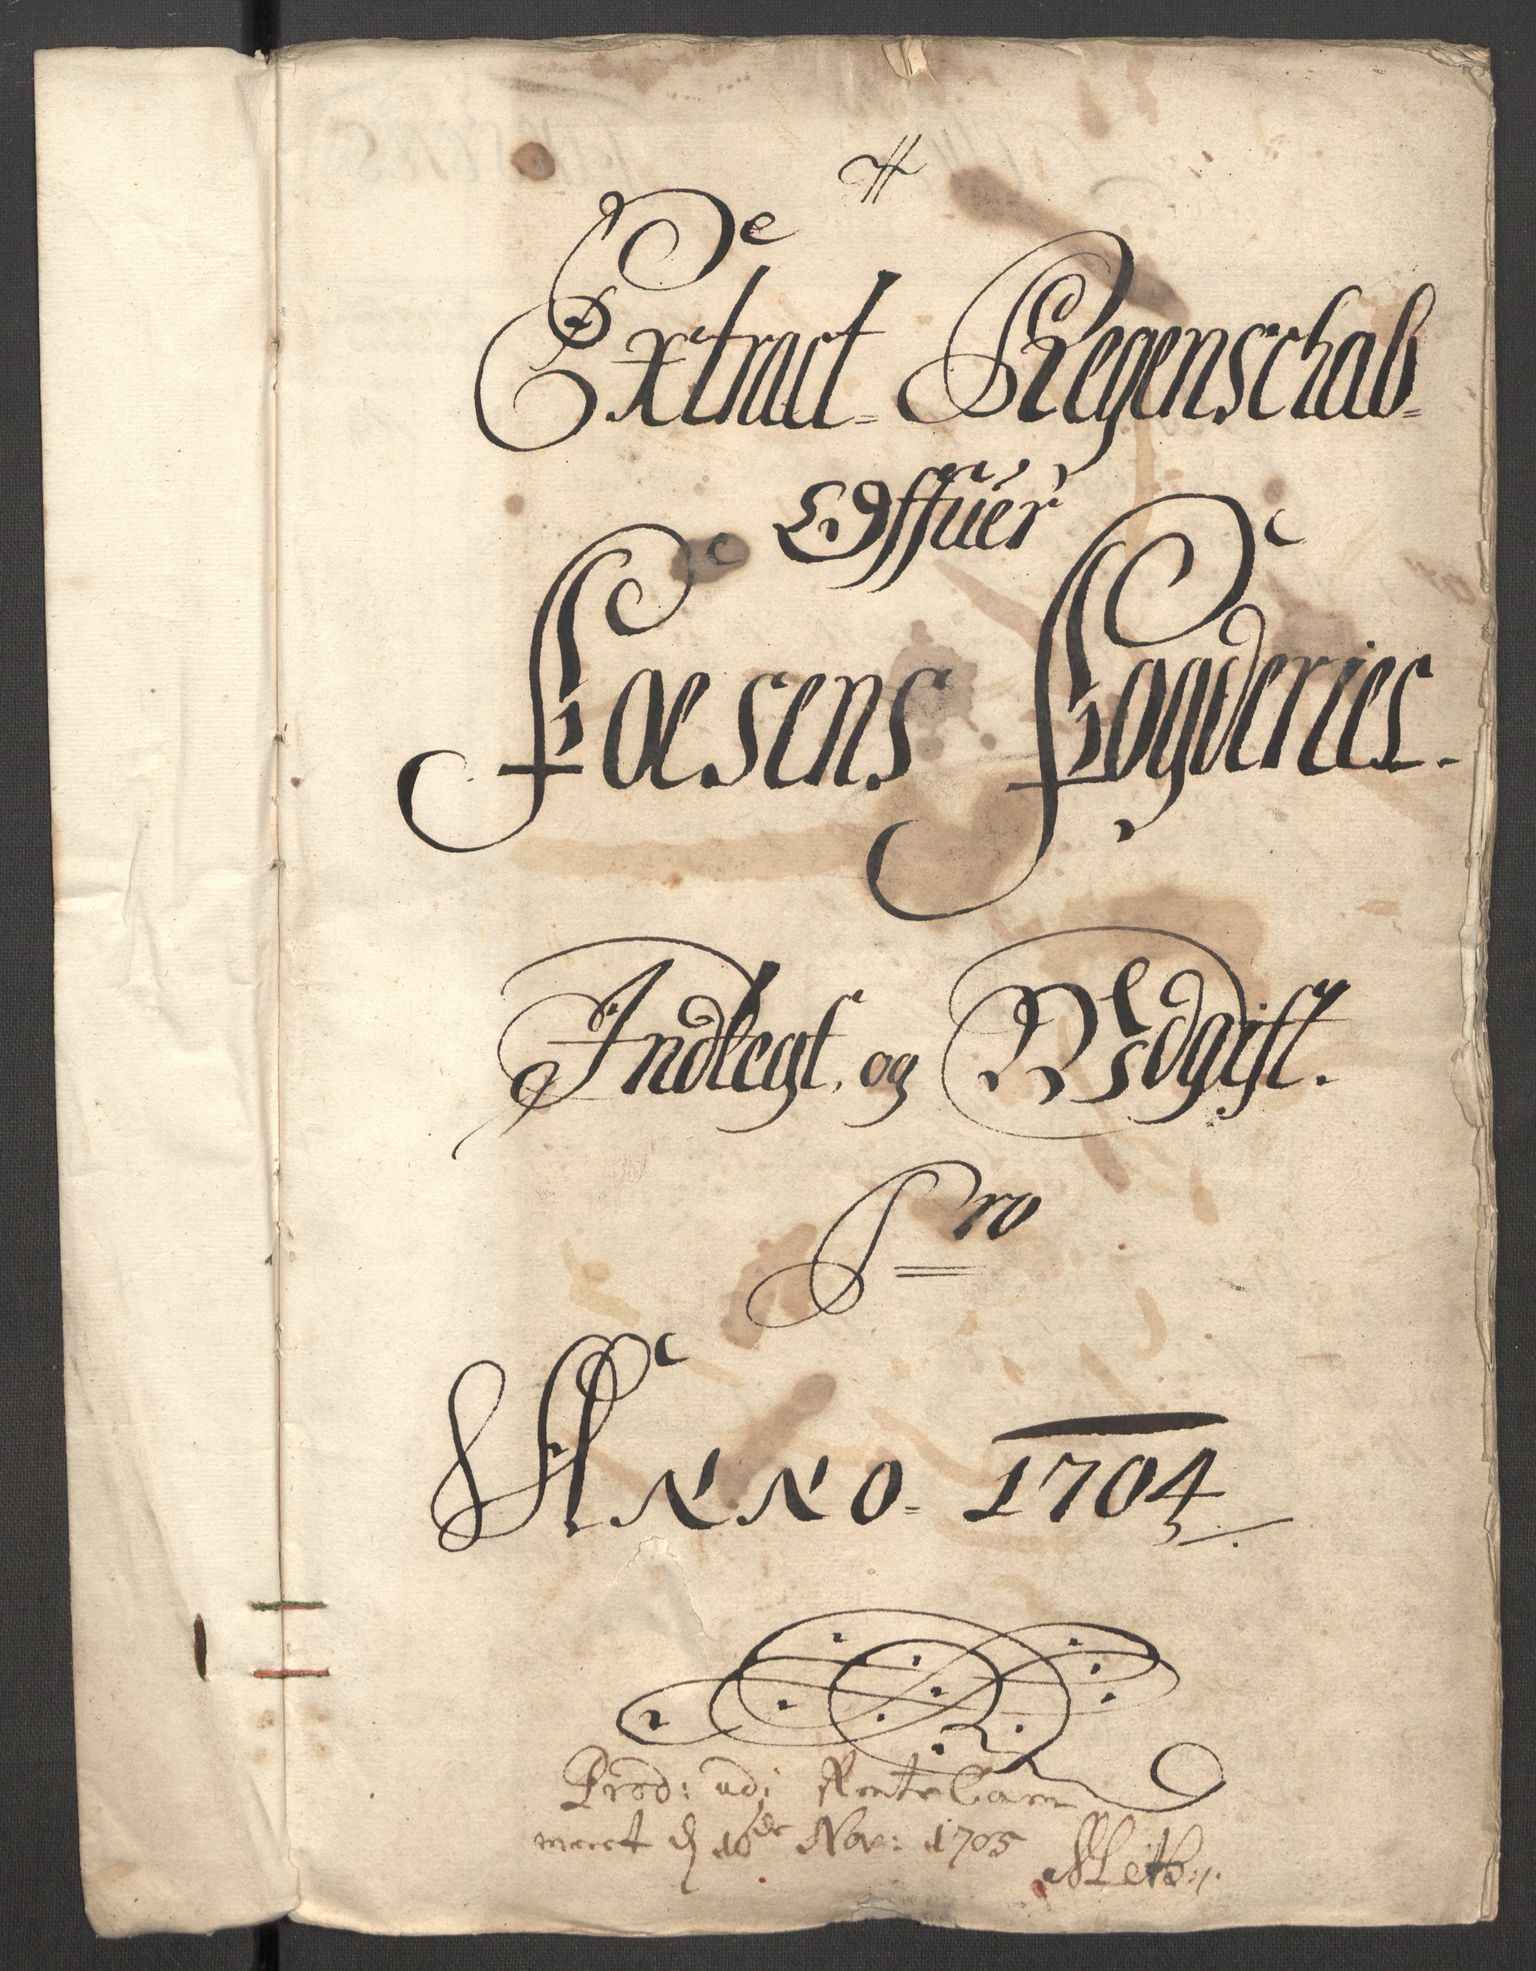 Extract Regenschab
Offuer
Foesens Fogderies
Indtegt, og Udgift.
Pro
Anno 1704
Prod: udi Rente Cam
meret d 16de Nov: 1705